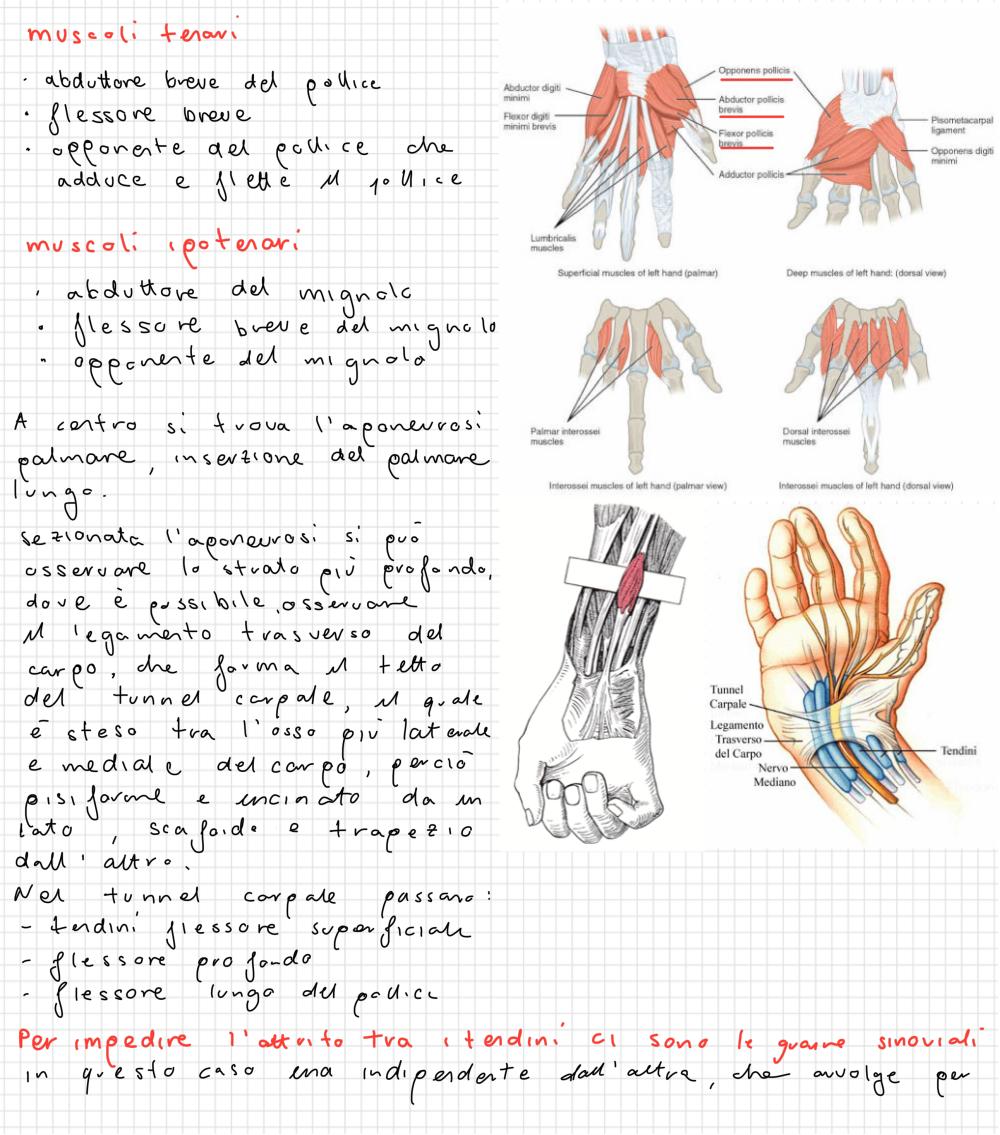 muscoli tenari
· abduttore breve del pollice
· flessore breve
· opponente del pollice che
adduce e flette il pollice
muscoli ipotenari
· abduttore del mignolo
· flessore breve del mignolo
· opponente del mignolo
A centro si trova l'aponeurosi
palmare, inserzione del palmare
lungo.
Sezionata l'aponeurosi si può
osservare lo strato più profondo,
dove è possibile osservare
il legamento trasverso del
carpo, che forma il tetto
del tunnel carpale, il quale
è steso tra l'osso più laterale
e mediale del carpo, perciò
pisiforme e uncinato da un
lato, scafoide e trapezio
dall'altro.
Nel tunnel carpale passano:
- tendini flessore superficiale
- flessore profondo
- flessore lungo del pollice
Per impedire l'attrito tra i tendini ci sono le guaine sinoviali
in questo caso una indipendente dall'altra, che avvolge per
Abductor digiti
minimi
Flexor digiti
minimi brevis
Lumbricalis
muscles
Opponens pollicis
Abductor pollicis
brevis
Flexor pollicis
brevis
Adductor pollicis
Pisometacarpal
ligament
Opponens digiti
minimi
Superficial muscles of left hand (palmar)
Deep muscles of left hand: (dorsal view)
Palmar interossei
muscles
Dorsal interossei
muscles
Interossei muscles of left hand (palmar view)
Interossei muscles of left hand (dorsal view)
Tunnel
Carpale
Legamento
Trasverso
del Carpo
Nervo
Mediano
Tendini